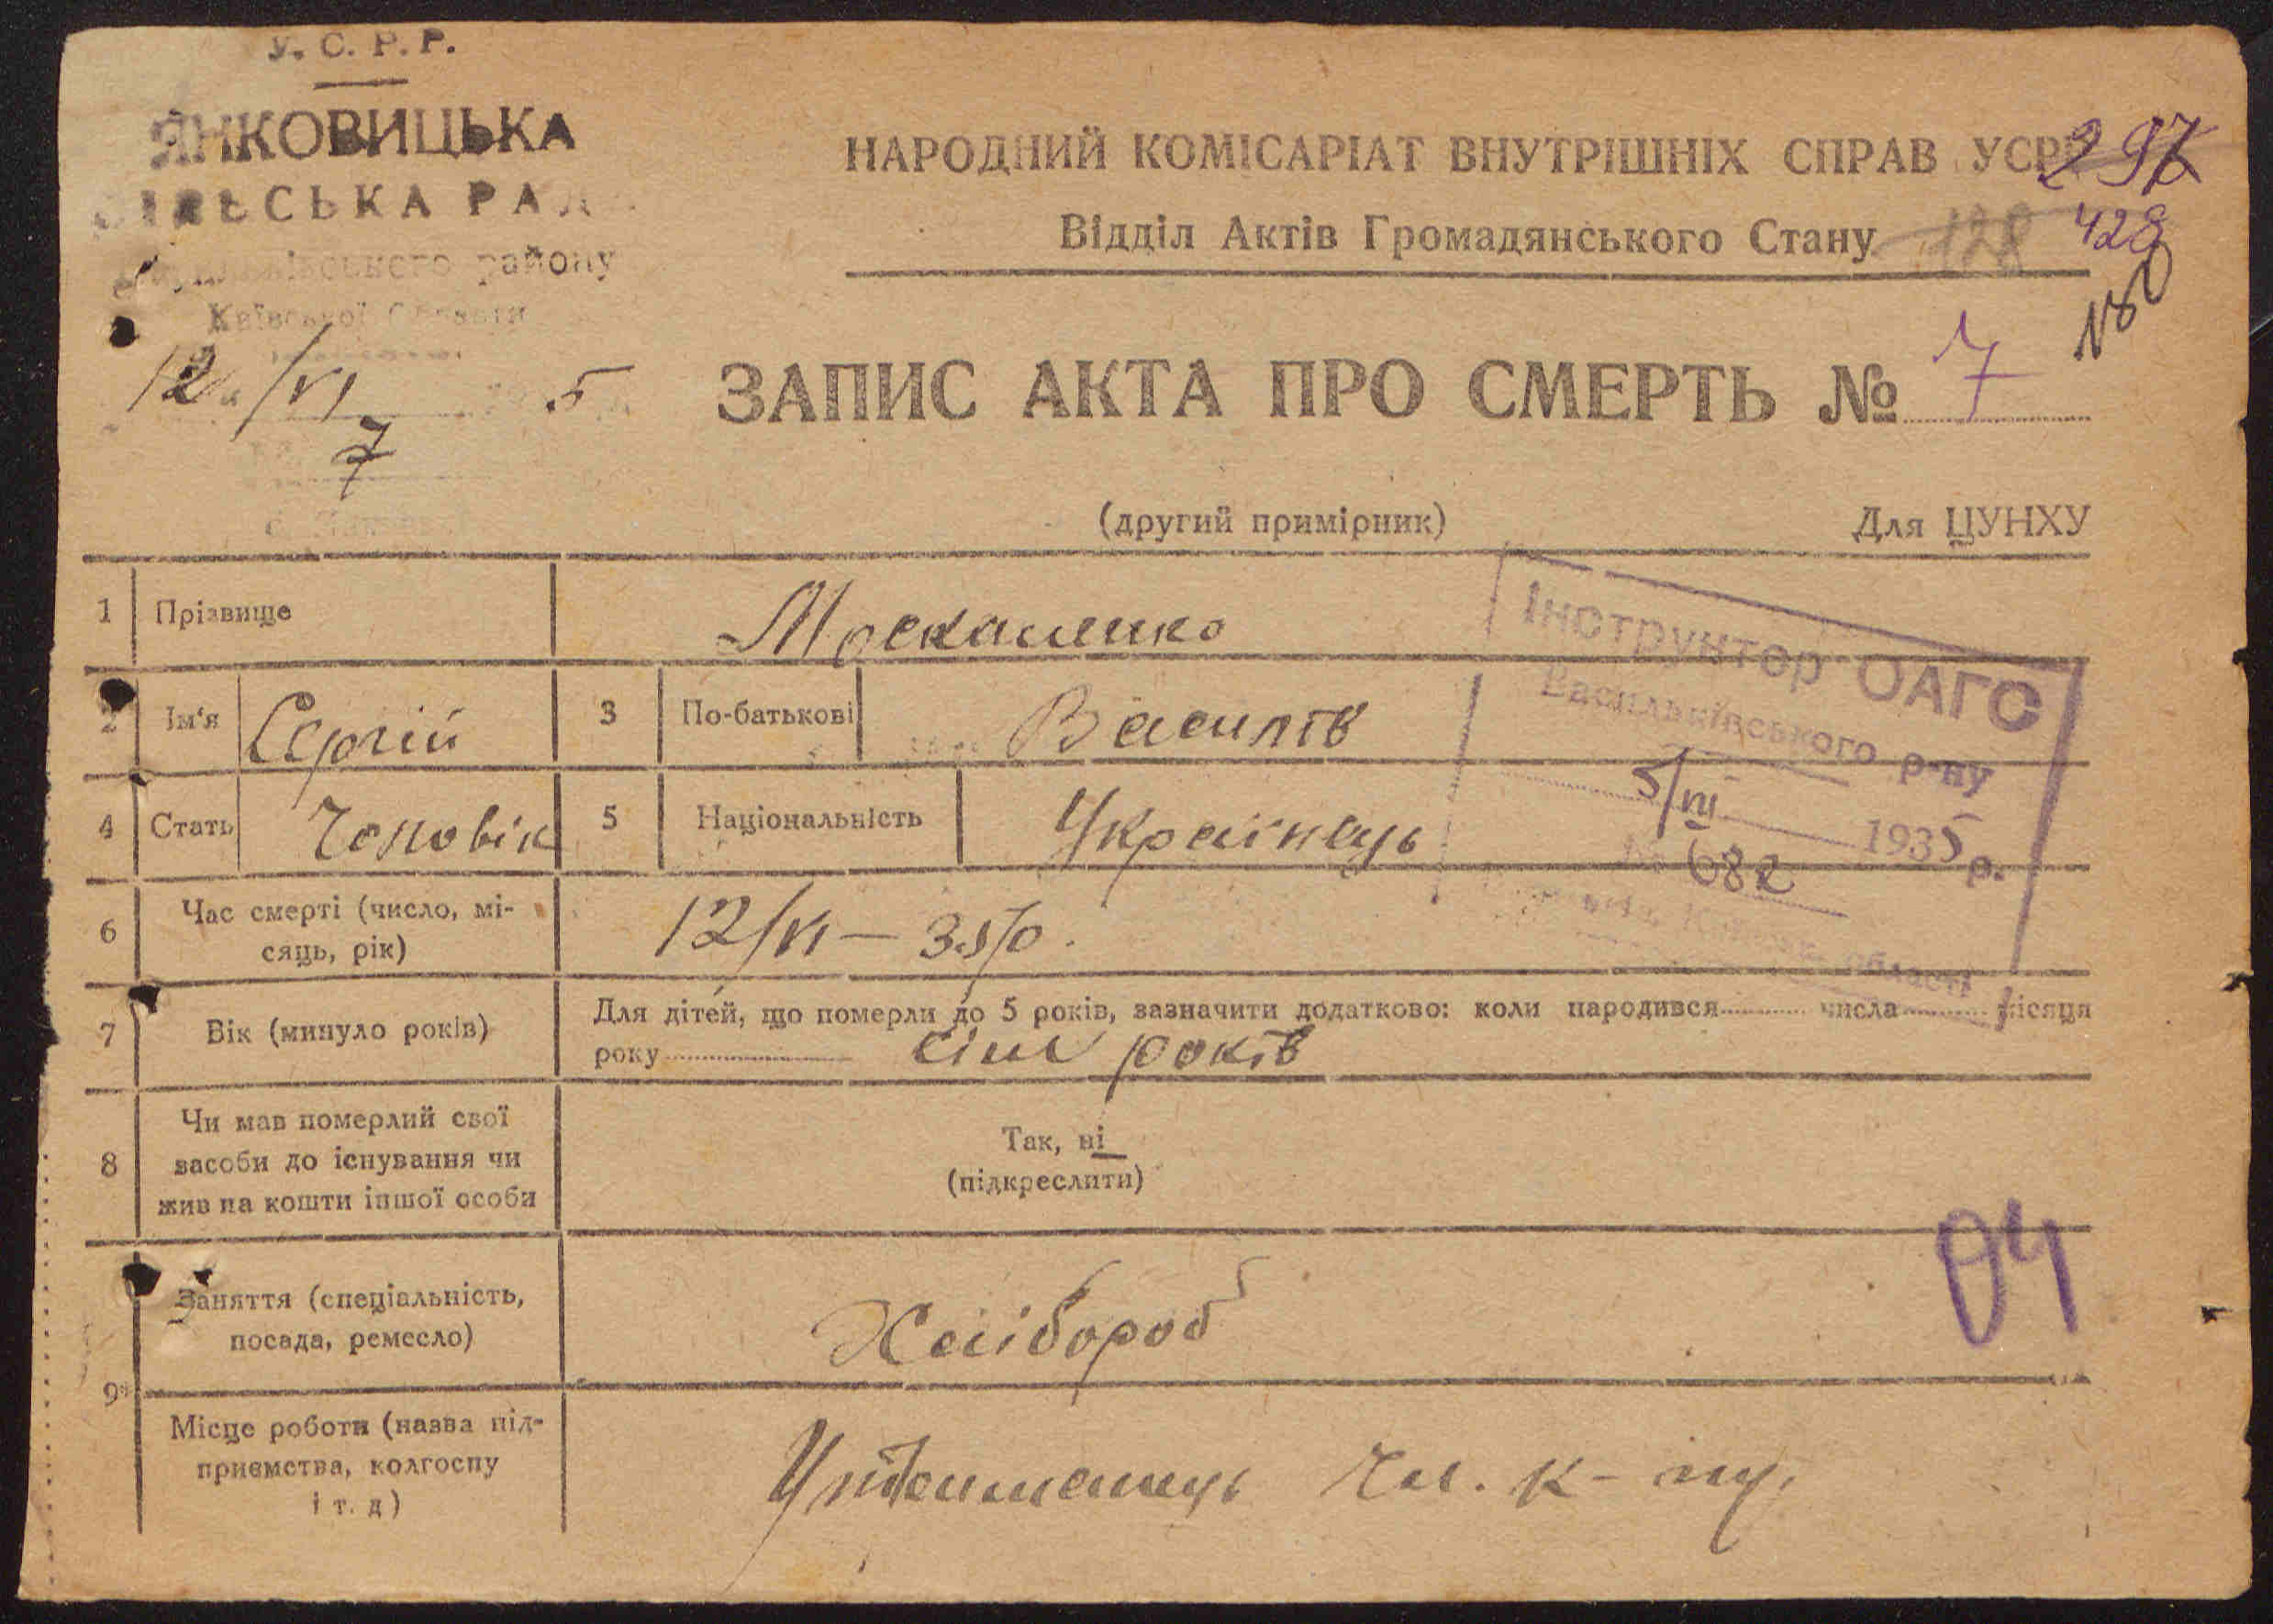 У. С. Р. Р.
ЯНКОВИЦЬКА
СІЛЬСЬКА РАДА
району
Київської Області
12/VI 5
7
НАРОДНИЙ КОМІСАРІАТ ВНУТРІШНІХ СПРАВ УСРР
297
Відділ Актів Громадянського Стану
128
428
180
ЗАПИС АКТА ПРО СМЕРТЬ № 7
(другий примірник)
Для ЦУНХУ
1 Прізвище Москаленко
Інструктор ОАГС
Васильківського р-ну
5/VII 1935 р.
№ 682
області
2 Ім'я Сергій 3 По-батькові Василів
4 Стать Чоловік 5 Національність Українець
6 Час смерті (число, мі-
сяць, рік)
12/VI – 35/0.
7 Вік (минуло років)
Для дітей, що померли до 5 років, зазначити додатково: коли народився числа місяця
року сім років
8 Чи мав померлий свої
засоби до існування чи
жив на кошти іншої особи
Так, ні
(підкреслити)
04
9 Заняття (спеціальність,
посада, ремесло)
Хлібороб
Місце роботи (назва під-
приємства, колгоспу
і т. д)
Утриманець Чл. к-пу